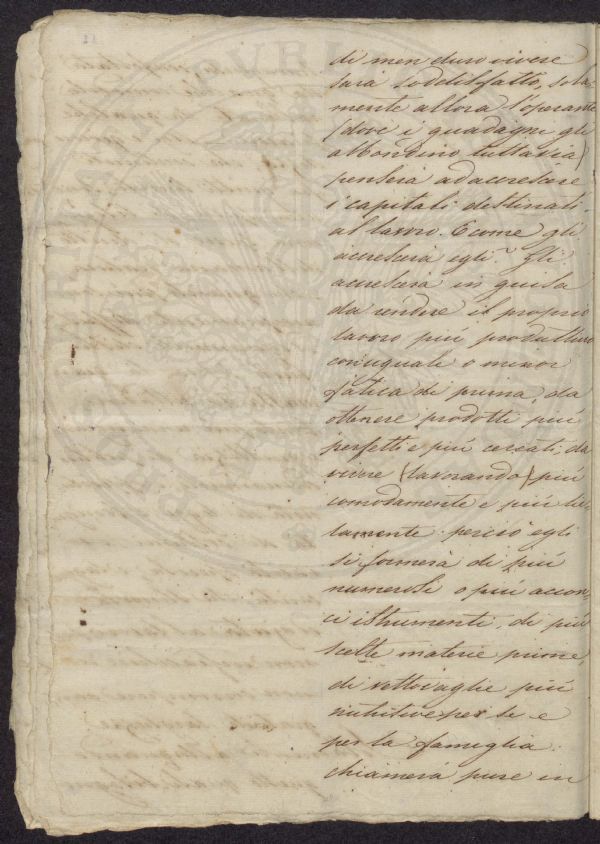 di men duro vivere
sarà soddisfatto, sola-
mente allora l'operante
(dove i guadagni gli
abbondino tuttavia)
penserà ad accrescere
i capitali destinati
al lavoro. E come gli
accrescerà egli? Gli
accrescerà in guisa
da rendere il proprio
lavoro più produttivo
con uguale o minor
fatica di prima, da
ottenere prodotti più
perfetti e più cercati, da
vivere (lavorando) più
comodamente e più lie-
tamente. perciò egli
si fornerà di più
numerosi o più accon-
ci istrumenti, di più
scelte materie prime,
di vettovaglie più
nutritive per se e
per la famiglia:
chiamerà pure in